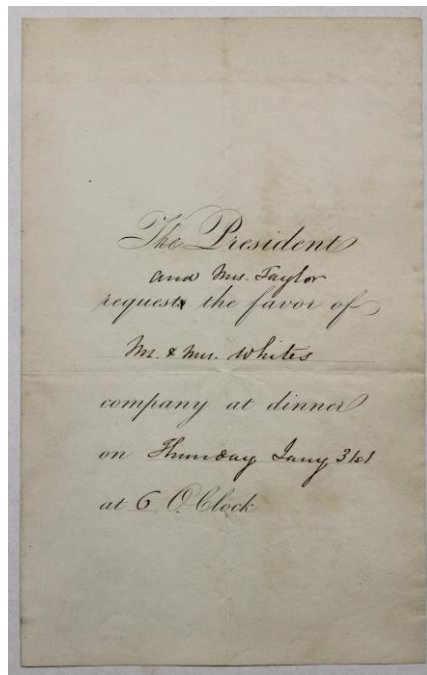 The President
and Mrs. Taylor
requests the favor of
Mr. & Mrs. Whites
company at dinner
on Thursday Jany 31st
at 6 O'Clock